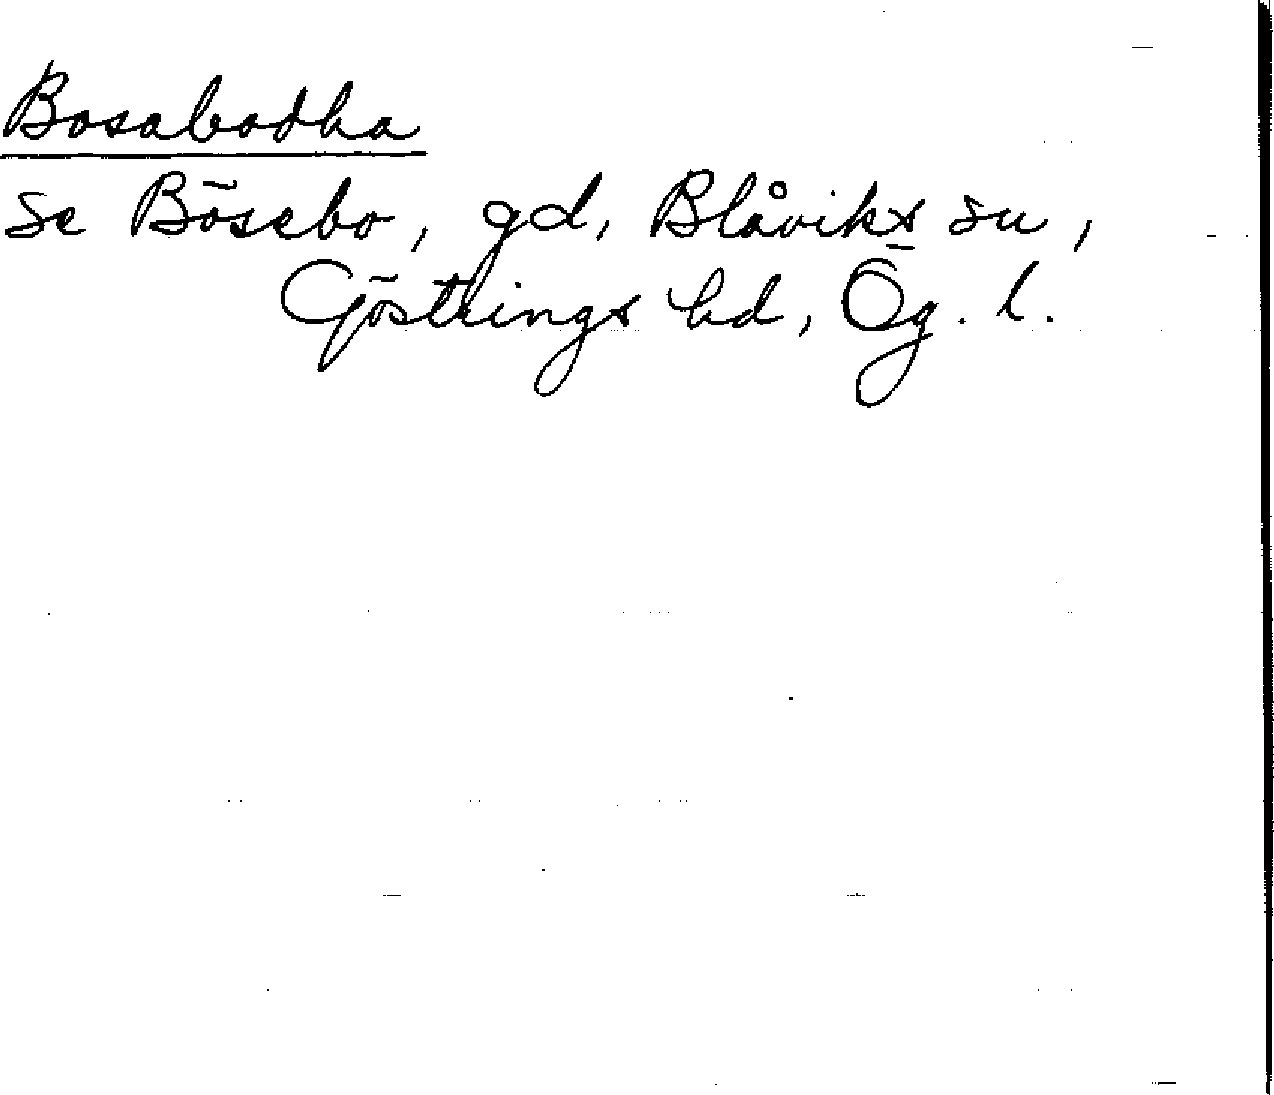 Bosabodha
se Bösebo, gd, Blåviks sn,
Göstrings hd, Ög. l.